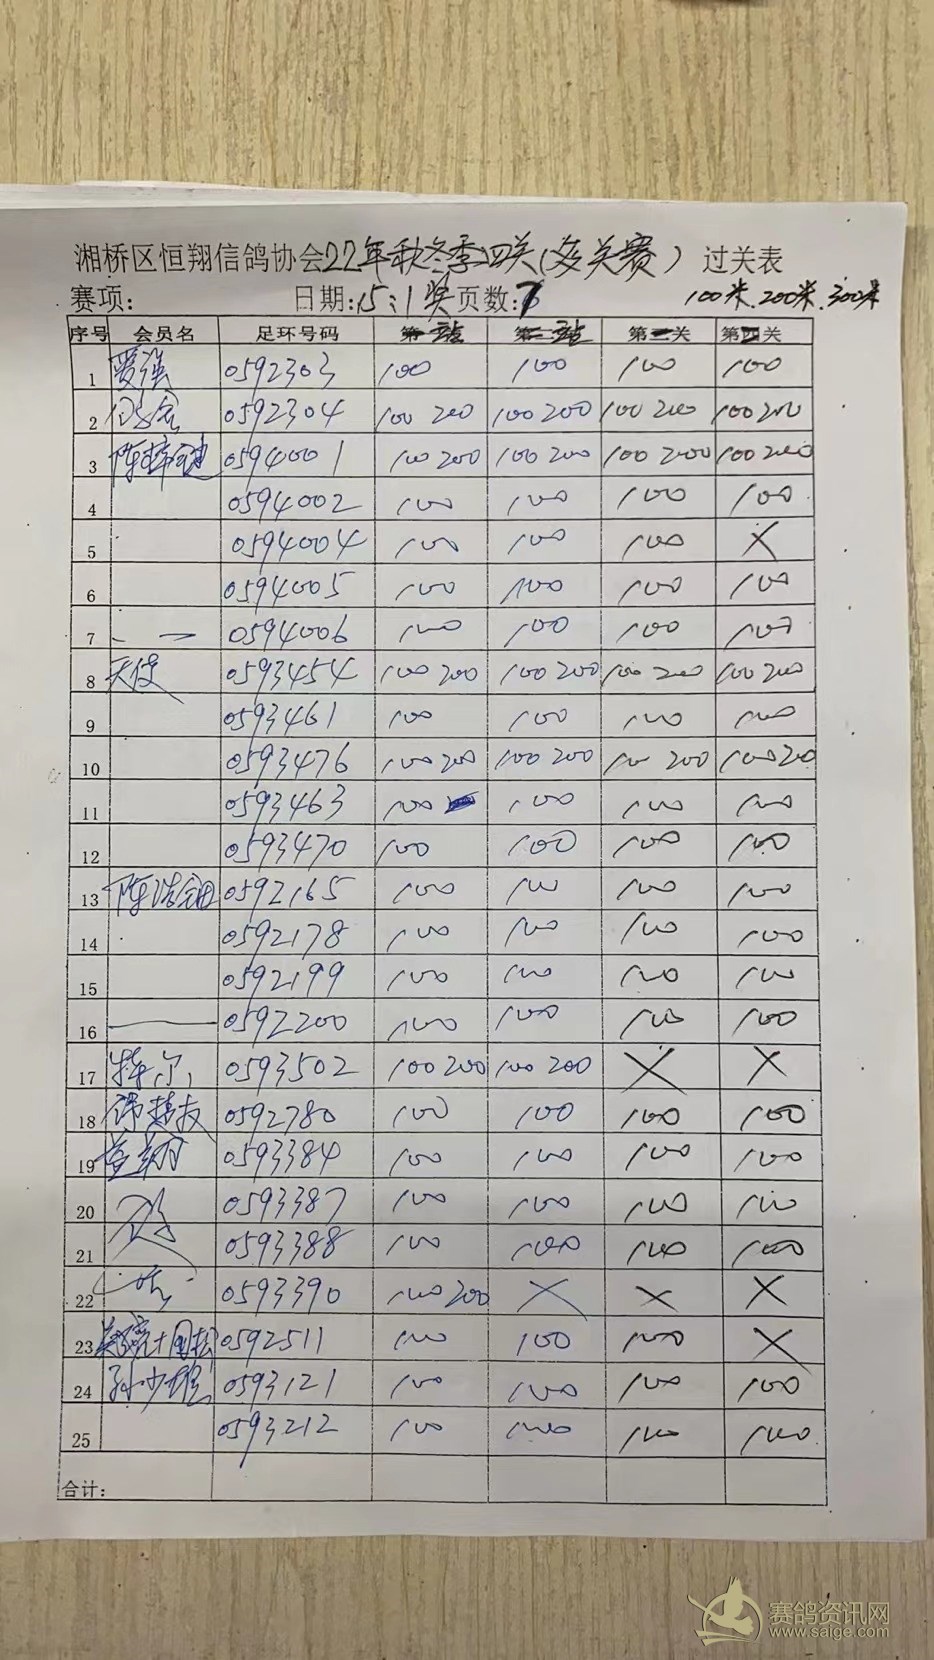 湘桥区恒翔信鸽协会22年秋冬季四关(多关赛) 过关表
赛项: 日期:15:1奖 页数:7 100米.200米.300米
序号 会员名 足环号码 第一站 第二站 第三关 第四关
1 爱强 0592303 100 100 100 100
2 0592304 100 200 100 200 100 200 100 200
3 陈梓健 0594001 100 200 100 200 100 200 100 200
4 0594002 100 100 100 100
5 0594004 100 100 100 X
6 0594005 100 100 100 100
7 0594006 100 100 100 100
8 天使 0593454 100 200 100 200 100 200 100 200
9 0593461 100 100 100 100
10 0593476 100 200 100 200 100 200 100 200
11 0593463 100 100 100 100
12 0593470 100 100 100 100
13 陈浩钿 0592165 100 100 100 100
14 0592178 100 100 100 100
15 0592199 100 100 100 100
16 0592200 100 100 100 100
17 0593502 100 200 100 200 X X
18 0592780 100 100 100 100
19 0593384 100 100 100 100
20 0593387 100 100 100 100
21 0593388 100 100 100 100
22 0593390 100 200 X X X
23 0592511 100 100 100 X
24 孙少雄 0593121 100 100 100 100
25 0593212 100 100 100 100
合计:
赛鸽资讯网
www.saige.com